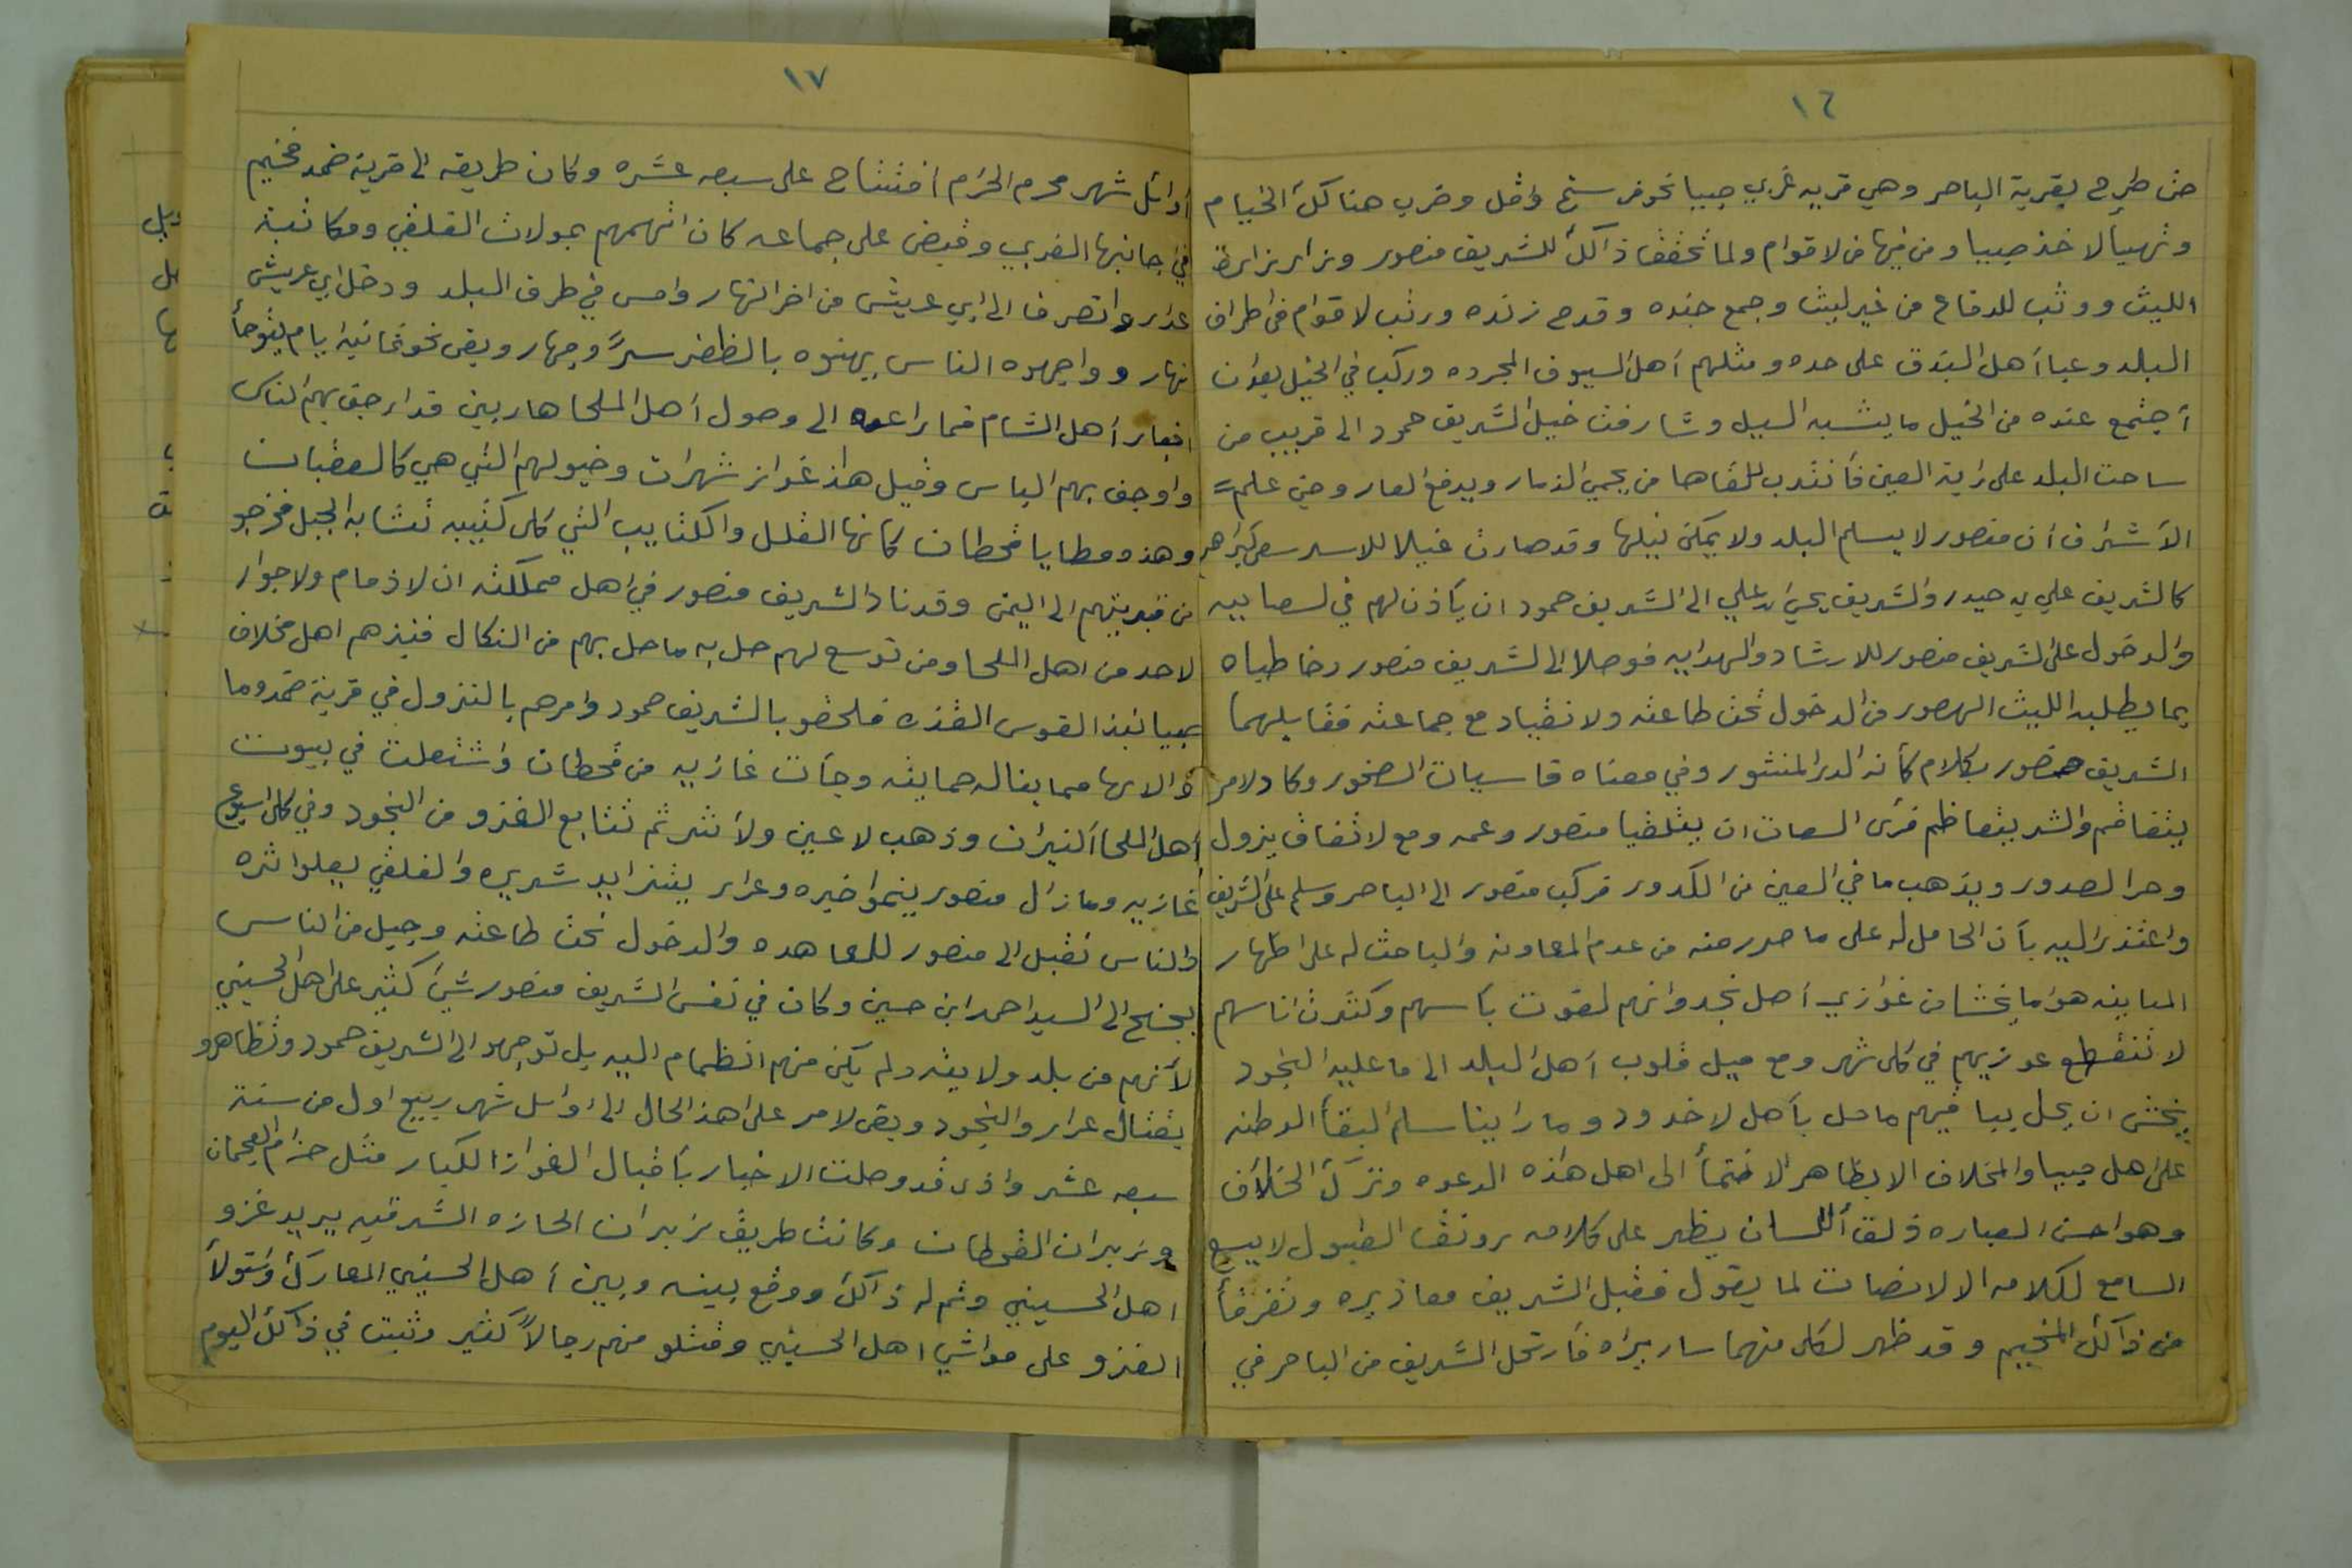 ١٦
حتى طرح بقرية الباحر وهي قريه غربي صبيا نحو فرسخ وقل وضرب هناكك الخيام
وتهيأ لاخذ صبيا ومن فيها من لاقوام ولما تحقق ذالك للشريف منصور وزأر زارة
الليث ووثب للدفاع من غير ليث وجمع جنده وقدح زنده ورتب لاقوام في اطراف
البلد وعبا أهل البندق على حده ومثلهم أهل السيوف المجرده وركب في الخيل بعد ان
أجتمع عنده من الخيل ما يشبه السيل وشارفت خيل الشريف حمود الى قريب من
ساحت البلد على زاية العين فأنتدب للقاها من يحمي الذمار ويدفع العار وحين علم =
الأشراف أن منصور لا يسلم البلد ولا يمكن نيلها وقد صارت غيلا للاسد سعى كبراهم
كالشريف علي بن حيدر والشريف يحيى ابن علي الى الشريف حمود ان يأذن لهم في
والدخول على الشريف منصور للارشاد والهدايه فوصلا الى الشريف منصور وخاطباه
بما يطلبه الليث الهصور من الدخول تحت طاعته ولانقياد مع جماعته فقابلهما
الشريف منصور بكلام كأنه الدر المنثور وفي معناه قاسيات الصخور وكاد لامر
يتفاقم والشر يتعاظم فرئى السعات ان يتلقيا منصور وعمه ومع لاتفاق يزول
وحر الصدور ويذهب ما في العين من الكدور فركب منصور الى الباحر وسلم على الشريف
واعتذر اليه بأن الحامل له على ما صدر منه من عدم المعاونه والباحث له على اظهار
المباينه هو ما يخشا من غوازي أهل نجد وانهم لقوت بأسهم وكثرت اناسهم
لا تنقطع عوزيهم في كل شهر ومع ميل قلوب أهل البلد الى ما عليه النجود
يخشى ان يحل بيا فيهم ما حل بأهل لاخدود وما رأينا سلم البقأ الوطنه
على اهل صبيا والمخلاف الا بظاهر الانتمأ الى اهل هذه الدعوه وترك الخلاف
وهو احسن العباره ذلق أللسان يظهر على كلامه رونق القبول لا يسع
السامع لكلامه الا لانصات لما يقول فقبل الشريف معاذيره وتفرقأ
من ذالك المخيم وقد ظهر لكل منهما ساريراه فأرتحل الشريف من الباحر في
١٧
أوائل شهر محرم الحرام أفتتاح على سبعه عشره وكان طريقه الى قرية ضمد فخيم
في جانبها الغربي وقبض على جماعه كان اتهمهم بمولات الفلقي ومكاتبة
عرار وانصرف الى ابي عريش من اخر النهار وامسى في طرف البلد ودخل ابي عريش
نهار وواجهوه الناس يهنوه بالظفر سرًا وجهار وبقى نحو ثمانية ايام يتوخأ
اخبار أهل الشام فما راعه الى وصول أهل الملحا هاربين قد ارجف بهم الناس
واوجف بهم الياس وقيل هاذ غوازز شهرات وخيولهم التي هي كالعقبات
وهذه مطايا قحطان كأنها القلل والكتايب التي كل كتيبه تشابه الجبل فخرجو
من قريتهم الى اليمن وقد نادا لشريف منصور في اهل مملكته ان لا ذمام ولا جوار
لاحد من اهل الملحا ومن توسع لهم حل به ما حل بهم من النكال فنبذهم اهل مخلاف
صبيا نبذ القوس القذه فلحقو بالشريف حمود وامرهم بالنزول في قرية ضمد وما
والاها مما يناله حمايته وجأت غازيه من قحطان وأشتعلت في بيوت
أهل الملحا النيران وذهب لاعين ولأثر ثم تتابع الغزو من النجود وفي كل اسبوع
غازيه ومازال منصور ينموا خيره وعرار يتزايد شريره والفلقي يعلوا اثره
والناس تقبل الى منصور للمعاهده والدخول تحت طاعته وجيل من الناس
يجنح الى السيد احمد ابن حسين وكان في نفس الشريف منصور شيء كثير على اهل الحسيني
لأنهم من بلد ولايته ولم يكن منهم انظمام اليه بل توجهو الى الشريف حمود وتظاهرو
بقتال عرار والنجود وبقى لامر على هذا الحال الى اوائل شهر ربيع اول من سنة
سبعه عشر واذى قد وصلت الاخبار بأقبال الغوازز الكبار مثل حزام العجمان
وزبران القحطان وكانت طريق زبران الحازه الشرقيه يريد غزو
اهل الحسيني وتم له ذالك ووقع بينه وبين أهل الحسيني المعارك وأستولأ
الغزو على مواشي اهل الحسيني وقتلو منهم رجالاً كثير وثبت في ذالك اليوم